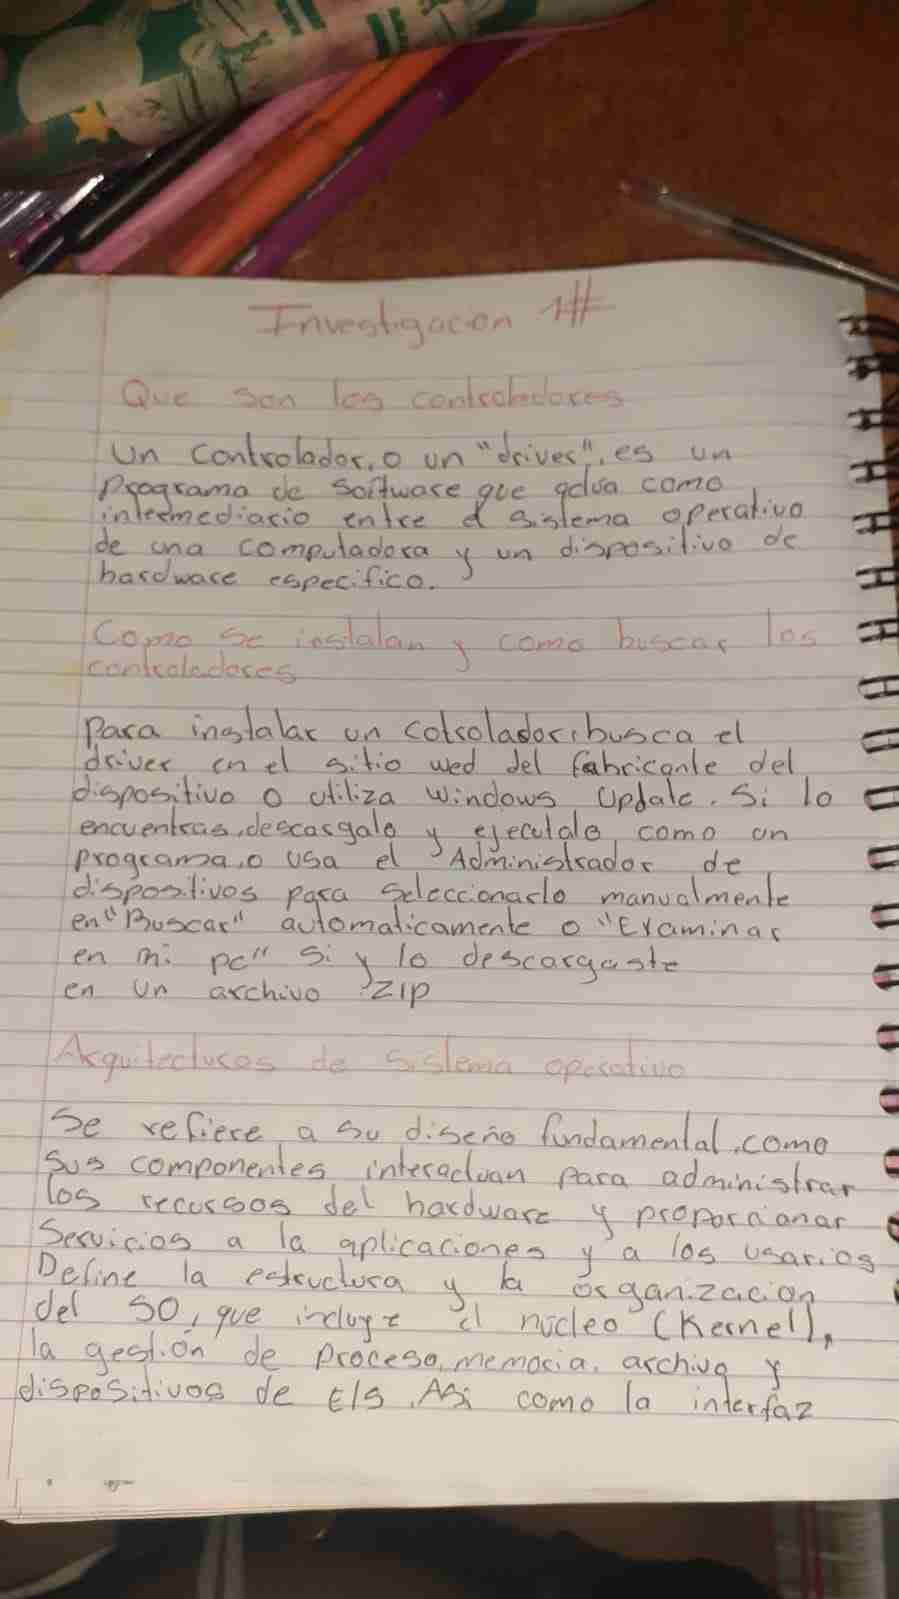 Investigacion 1#
Que son los controladores
Un controlador, o un "driver", es un
programa de software que actúa como
intermediario entre el sistema operativo
de una computadora y un dispositivo de
hardware especifico.
Como se instalan y como buscar los
controladores
para instalar un cotrolador, busca el
driver en el sitio wed del fabricante del
dispositivo o utiliza windows Update. Si lo
encuentras, descargalo y ejecutalo como un
programa, o usa el Administrador de
dispositivos para seleccionarlo manualmente
en "Buscar" automaticamente o "Examinar
en mi pc" si y lo descargaste
en un archivo .ZIP
Arquitecturas de sistema operativo
Se refiere a su diseño fundamental, como
sus componentes interactuan para administrar
los recursos del hardware y proporcionar
Servicios a la aplicaciones y a los usarios
Define la estructura y la organizacion
del SO, que incluye el núcleo (Kernel),
la gestión de proceso, memoria, archivo y
dispositivos de E/S. Asi como la interfaz